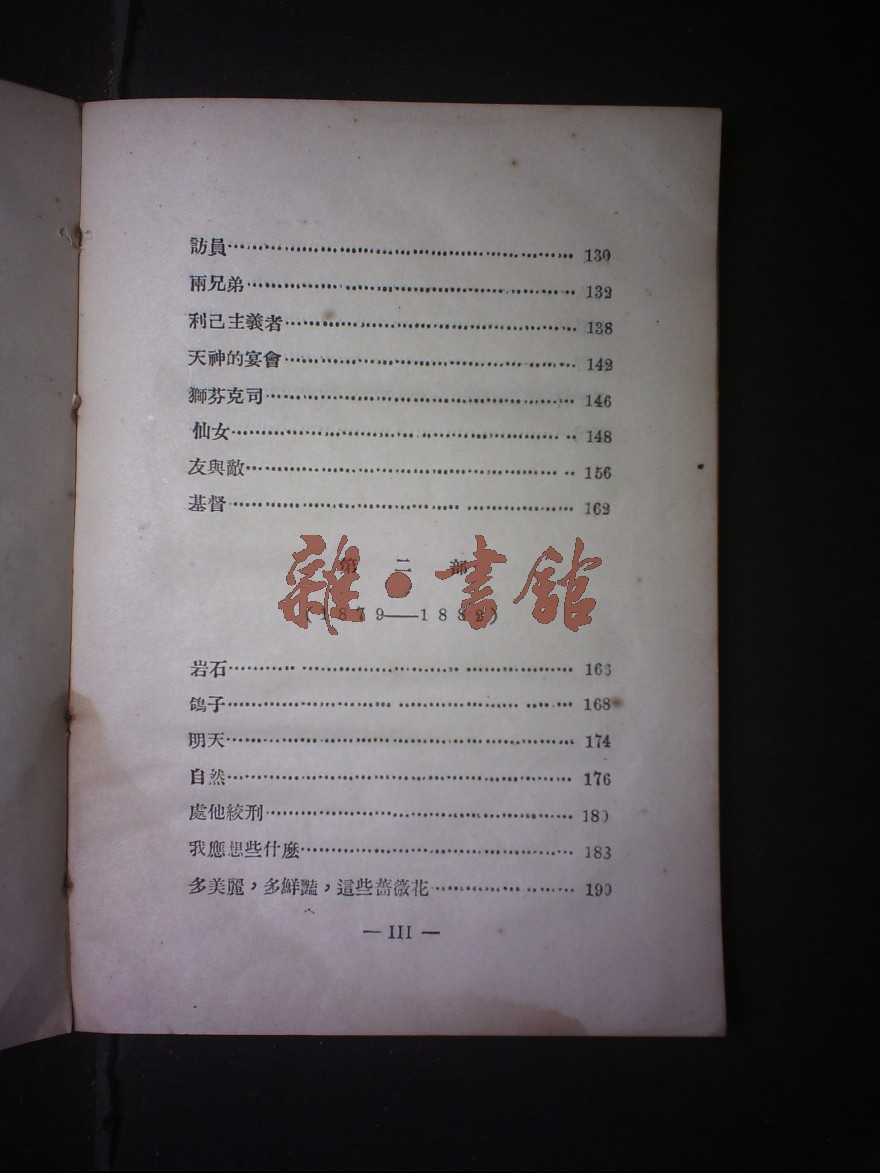 訪員 130
兩兄弟 132
利己主義者 138
天神的宴會 142
獅芬克司 146
仙女 148
友與敵 156
基督 162
第二部
雜·書館
(1879—1882)
岩石 166
鴿子 168
明天 174
自然 176
處他絞刑 180
我應想些什麽 183
多美麗，多鮮豔，這些薔薇花 190
— III —